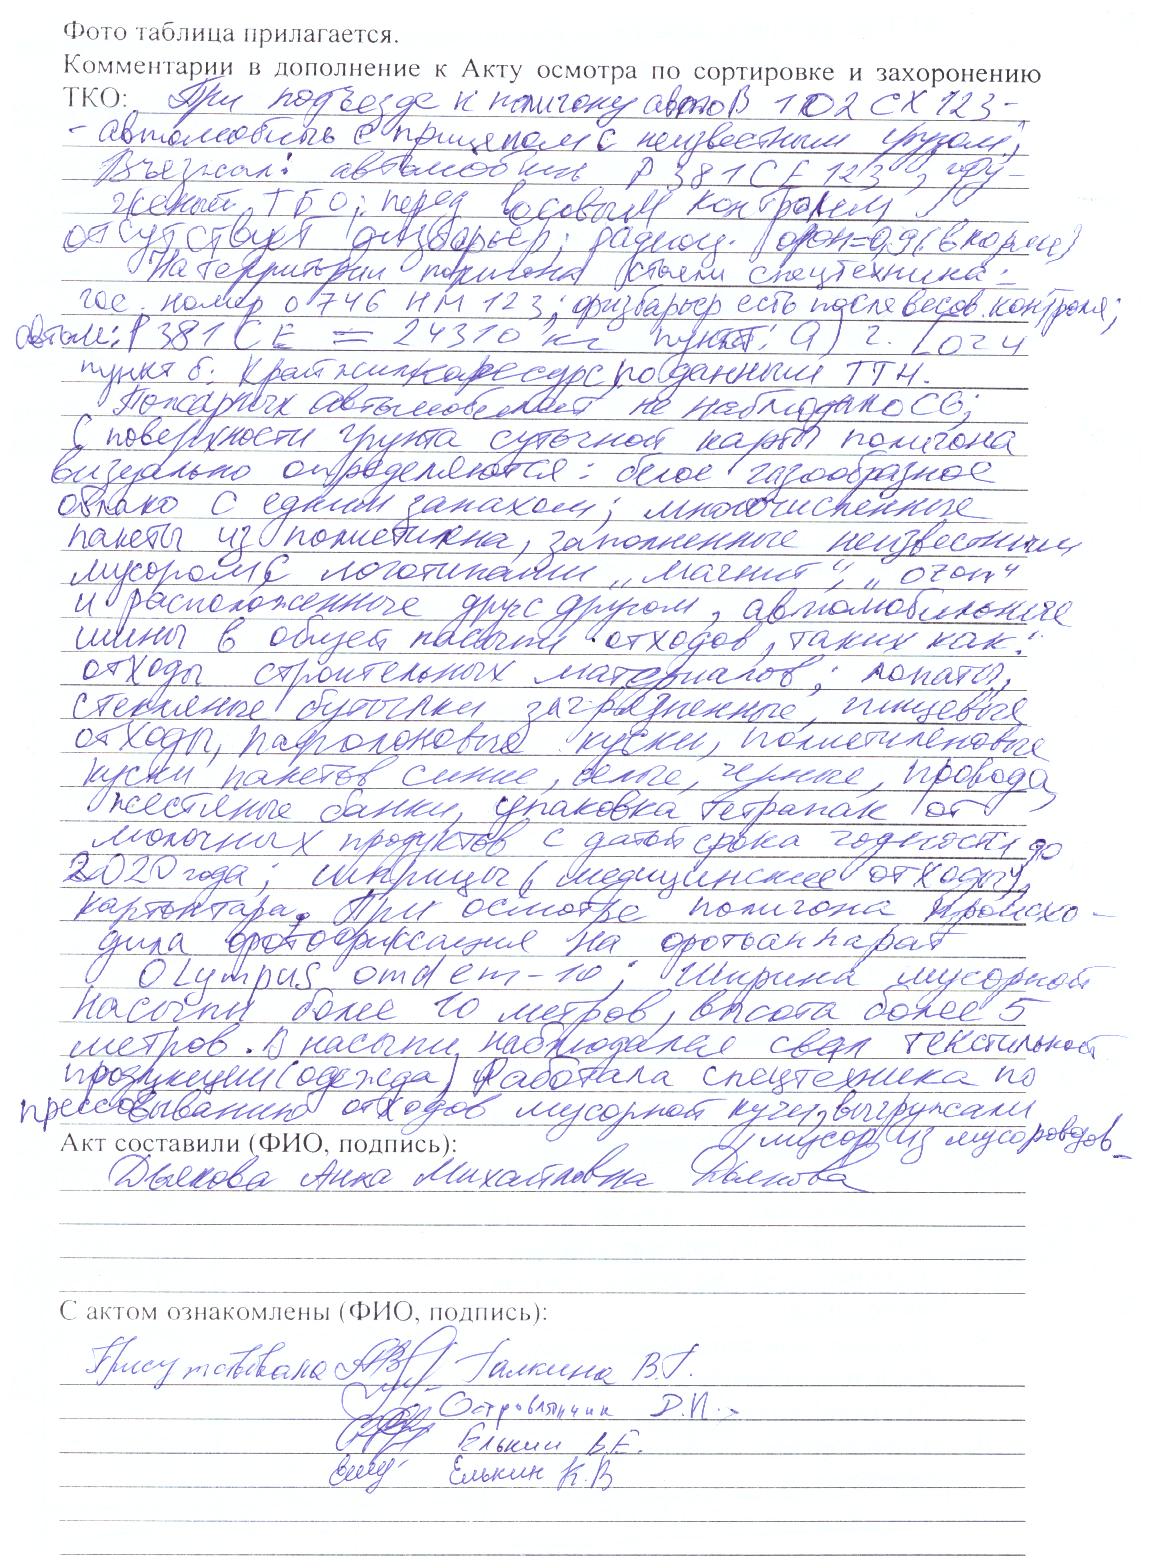 Фото таблица прилагается.
Комментарии в дополнение к Акту осмотра по сортировке и захоронению
ТКО: При подъезде к полигону авто В 102 СХ 123 -
- автомобиль с прицепом с неизвестным грузом;
Въезжал: автомобиль Р 381 СЕ 123, гру-
женый ТБО; перед весовым контролем
отсутствует дизбарьер; радиац. фон=0,9 (в норме)
На территории полигона стояли спецтехника:
гос. номер о 746 НМ 123; дизбарьер есть после весов. контроля;
автом: Р 381 СЕ = 24310 кг пункт: а) г. Сочи
пункт б: Крайжилкомресурс, по данным ТТН.
Пожарных автомобилей не наблюдалось;
С поверхности грунта суточной карты полигона
визуально определяются: белое газообразное
облако с едким запахом; многочисленные
пакеты из полиетилена, заполненные неизвестным
мусором с логотипами „Магнит“, „ 
и расположенные друг с другом, автомобильные
шины в общей насыпи отходов, таких как:
отходы строительных материалов; лопаты,
стекляные бутылки загрязненные, пищевые
отходы, паралоновые куски, полиетиленовые
куски пакетов синие, белые, черные, провода,
жестяные банки, упаковка тетрапак от
молочных продуктов с датой срока годности до
2020 года; шприцы (медицинские отходы),
картонтара. При осмотре полигона происхо-
дила фотофиксация на фотоаппарат
Olympus omd em-10; Ширина мусорной
насыпи более 10 метров, высота более 5
метров. В насыпи наблюдался свал текстильной
продукции (одежда) Работала спецтехника по
прессовыванию отходов мусорной кучи, выгружали
мусор из мусоровозов
Акт составили (ФИО, подпись):
Дьякова Анна Михайловна Дьякова
С актом ознакомлены (ФИО, подпись):
Присутствовала Галкина В.Г.
Островлянчик Д.И.
Елькин В.Е.
Елькин К.В